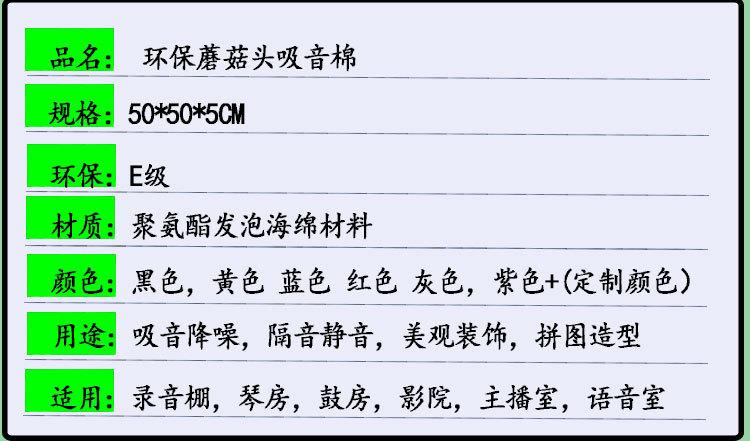 品名: 环保蘑菇头吸音棉
规格: 50*50*5CM
环保: E级
材质: 聚氨酯发泡海绵材料
颜色: 黑色，黄色 蓝色 红色 灰色，紫色+(定制颜色)
用途: 吸音降噪，隔音静音，美观装饰，拼图造型
适用: 录音棚，琴房，鼓房，影院，主播室，语音室